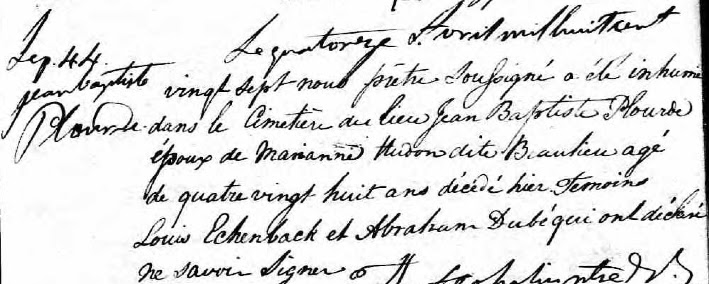 Sep. 44.
jean baptiste
Plourde
Le quatorze Avril mil huit cent
vingt sept nous prêtre soussigné a été inhumé
dans le Cimetière du lieu Jean Baptiste Plourde
époux de Marianne Hudon dite Beaulieu agé
de quatre vingt huit ans décédé hier. Temoins
Louis Echenback et Abraham Dubé qui ont déclaré
ne savoir signer